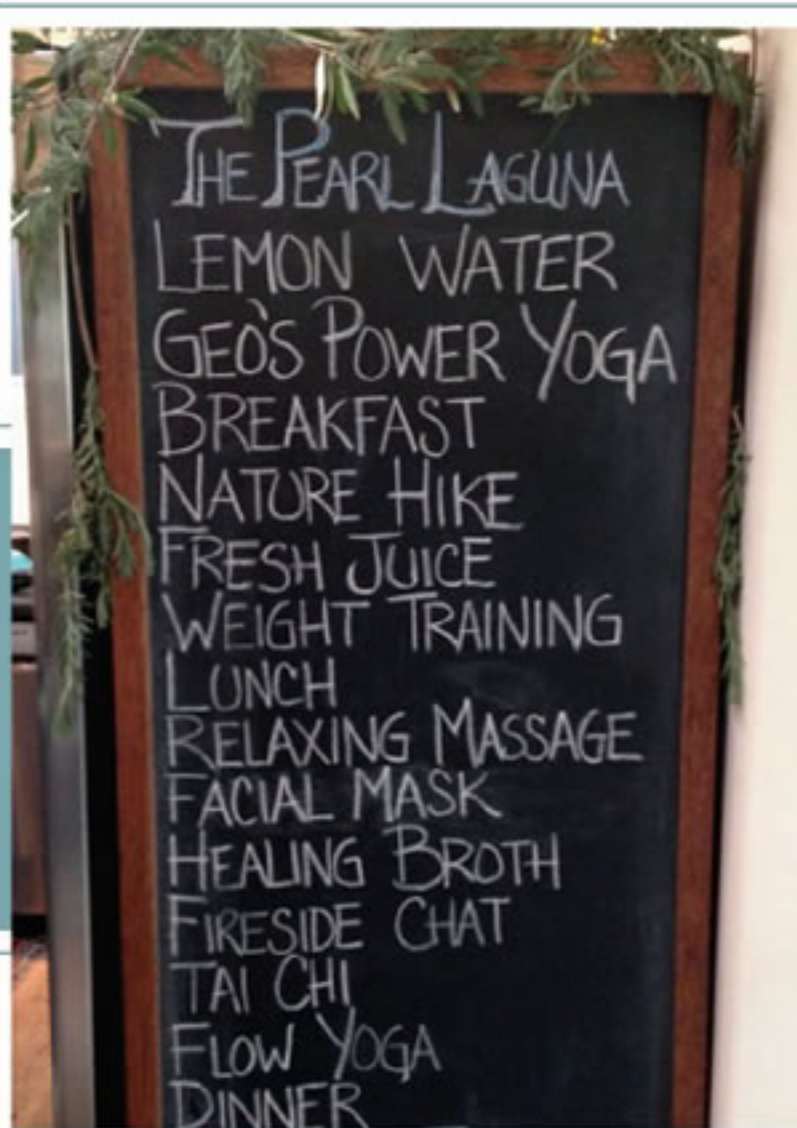 THE PEARL LAGUNA
LEMON WATER
GEO'S POWER YOGA
BREAKFAST
NATURE HIKE
FRESH JUICE
WEIGHT TRAINING
LUNCH
RELAXING MASSAGE
FACIAL MASK
HEALING BROTH
FIRESIDE CHAT
TAI CHI
FLOW YOGA
DINNER